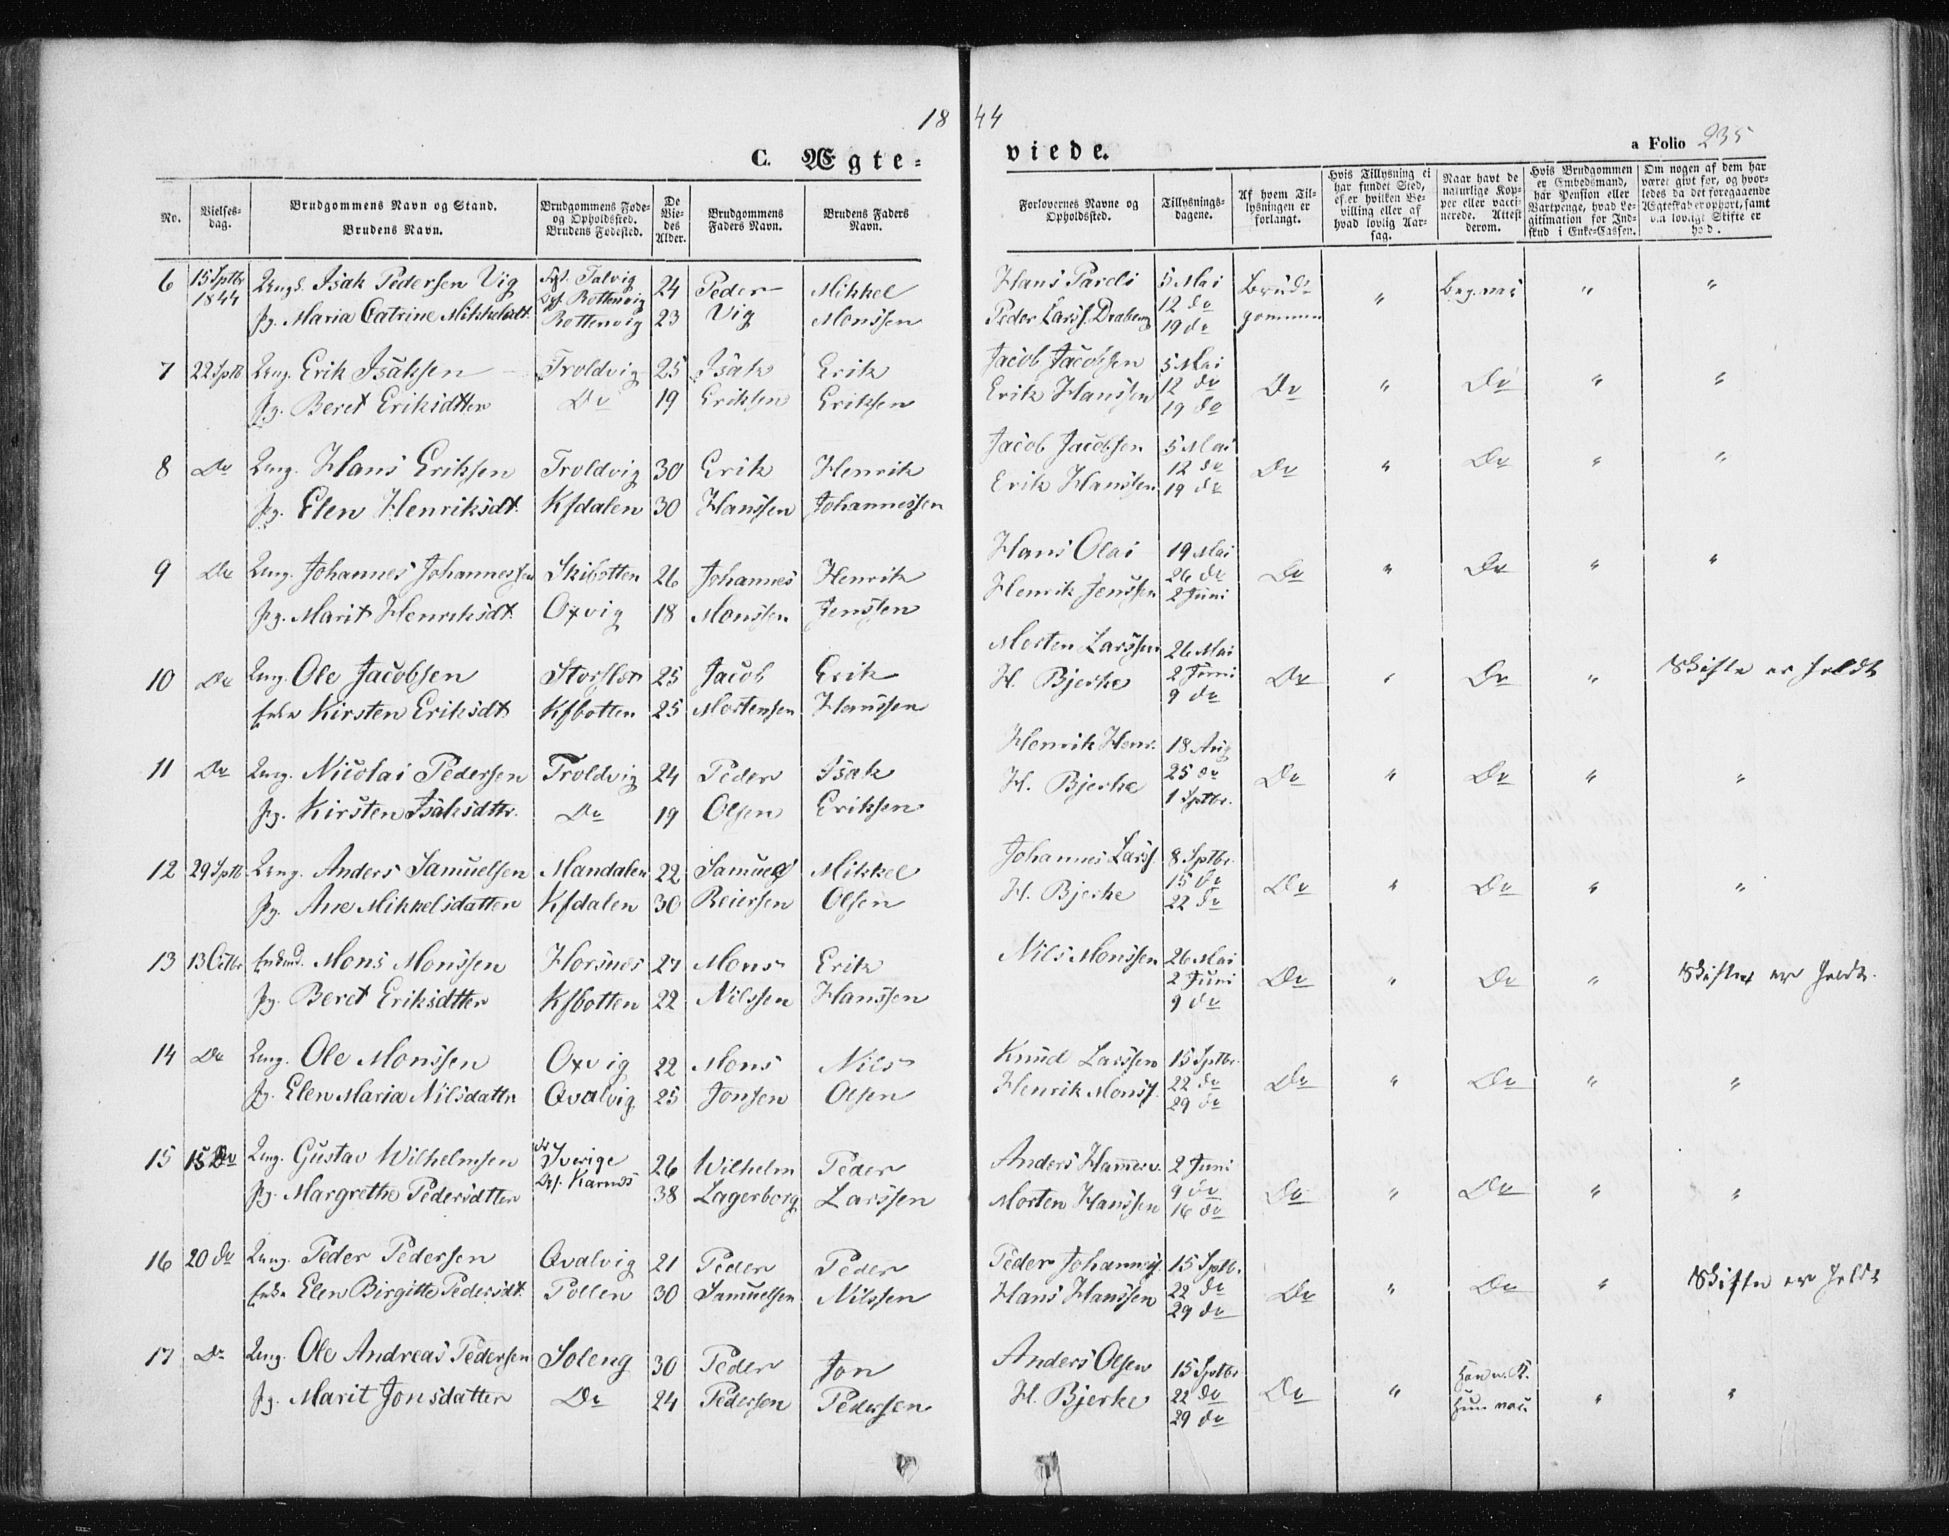 1844
C. Ægteviede.
a Folio 235
No.
Vielses-dag.
Brudgommens Navn og Stand.
Brudens Navn.
Brudgommens Føde- og Opholdssted.
Brudens Fødested.
De Viedes Alder.
Brudgommens Faders Navn.
Brudens Faders Navn.
Forlovernes Navne og Opholdssted.
Tillysnings-dagene.
Af hvem Tillysningen er forlangt.
Hvis Tillysning ei har fundet Sted, efter hvilken Bevilling eller af hvad lovlig Aarsag.
Naar havt de naturlige Kopper eller vaccinerede. Attest derom.
Hvis Brudgommen er Embedsmand, har Pension eller Vartpenge, hvad Legitimation for Indskud i Enke-Cassen.
Om nogen af dem har været givt før, og hvorledes da det foregaaende Ægteskab er ophørt, samt om lovligt Skifte er holdt.
6 15 Sptbr 1844 Ungk. Isak Pedersen Vig Fst. Talvig Ops. Rottenvig 24 Peder Mikkel Hans Parels 5 Mai Brud- " Beg. vac " "
Pg. Maria Catrine Mikkelsdt. Rottenvig 23 Vig Monssen Peder Larss. Draberg 12 do gommen
19 do
7 22 Sptb Ung. Erik Isaksen Troldvig 25 Isak Erik Jacob Jacobsen 5 Mai
Pg. Beret Eriksdtter Do 19 Eriksen Eriksen Erik Hanssen 12 do Do " Do " "
19 do
8 Do Ung. Hans Eriksen Troldvig 30 Erik Henrik Jacob Jacobsen 5 Mai
12 do Do " Do " "
Pg. Elen Henriksdt. Kfdalen 30 Hanssen Johannessen Erik Hanssen 19 do
9 Do Ung. Johannes Johannessen Skibotten 26 Johannes Henrik Hans Olai 19 Mai
26 do Do " Do " "
Pg. Marit Henriksdt. Oxvig 18 Monssen Jenssen Henrik Jenssen 2 Juni
10 Do Ung. Ole Jacobsen Storslet 25 Jacob Erik Morten Larssen 26 Mai
Enke Kirsten Eriksdt Kfbotten 25 Mortensen Hanssen H. Bjerke 2 Juni Do " Do " Skifte er holdt
9 do
11 Do Ung. Nicolai Pedersen Troldvig 24 Peder Isak Henrik Henr. 18 Aug
Pg. Kirsten Isaksdttr. Do 19 Olsen Eriksen H. Bjerke 25 do Do " Do " "
1 Sptbr.
12 29 Sptb Ung. Anders Samuelsen Mandalen 22 Samuel Mikkel Johannes Larss. 8 Sptbr.
Pg. Ane Mikkelsdatter Kfdalen 30 Reiersen Olsen H. Bjerke 15 do Do " Do " "
22 do
13 13 Octbr Enkmd. Mons Monssen Horsnes 27 Mons Erik Nils Monssen 26 Mai
Pg. Beret Eriksdtter Kfbotten 22 Nilssen Hanssen 2 Juni Do " Do " Skiftet er holdt.
9 do
14 Do Ung. Ole Monssen Oxvig 22 Mons Nils Knud Larssen 15 Sptbr.
Pg. Elen Maria Nilsdattr Qvalvig 25 Jonsen Olsen Henrik Monss. 22 do Do " Do " "
29 do
15 15 Do Ung. Gustav Wilhelmsen Sverige Ops. Karnes 26 Wilhelm Peder Anders 2 Juni
Pg. Margrethe Pedersdtter 38 Lagerborg Larssen Morten Hanssen 9 do Do " Do " "
16 do
16 20 do Ung. Peder Pedersen Qvalvig 21 Peder Peder Peder Johannes. 15 Sptb.
Enke Elen Birgitte Pedersdt. Pollen 30 Samuelsen Nilssen Hans Hanssen 22 do Do " Do " Skifte er holdt
29 do
17 Do Ung. Ole Andreas Pedersen Soleng 30 Peder Jon Anders Olsen 15 Sptbr Han n. K.
Pg. Marit Jonsdatter Do 24 Pedersen Pedersen H. Bjerke 22 do Do " Hun vac. " "
29 do